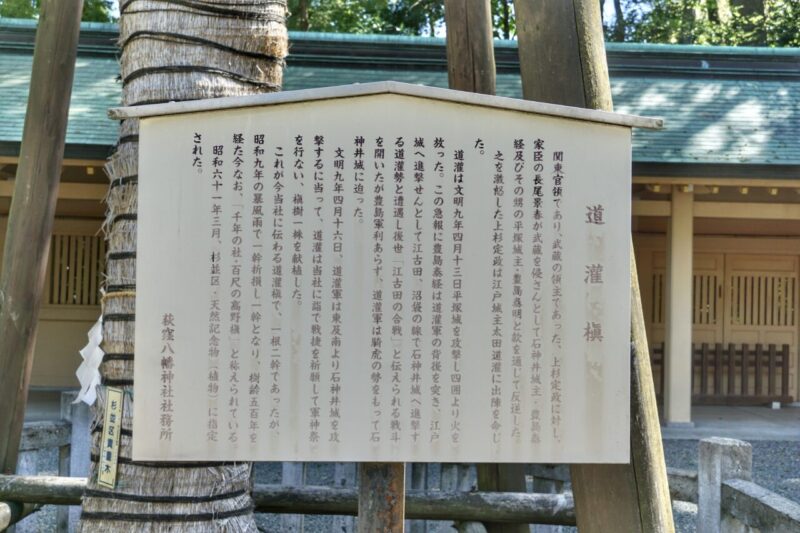 道灌槇
関東官領であり、武蔵の領主であった、上杉定政に対し、
家臣の長尾景春が武蔵を侵さんとして石神井城主・豊島泰
経及びその甥の平塚城主・豊島尋明と款を通じて反逆した。
之を激怒した上杉定政は江戸城主太田道灌に出陣を命じ
た。
道灌は文明九年四月十三日平塚城を攻撃し四囲より火を
放った。この急報に豊島泰経は道灌軍の背後を突き、江戸
城へ進撃せんとして江古田、沼袋の線で石神井城へ進撃す
る道灌勢と遭遇し後世「江古田の合戦」と伝えられる戦斗
を開いたが豊島軍利あらず、道灌軍は騎虎の勢をもって石
神井城に迫った。
文明九年四月十六日、道灌軍は東及南より石神井城を攻
撃するに当って、道灌は当社に詣で戦捷を祈願して軍神祭
を行ない、槇樹一株を献植した。
これが今当社に伝わる道灌槇で、一根二幹であったが、
昭和九年の暴風雨で一幹折損し一幹となり、樹齢五百年を
経た今なお、「千年の社・百尺の高野槇」と称えられている。
昭和六十一年三月、杉並区・天然記念物(植物)に指定
された。
荻窪八幡神社社務所
杉並区貴重木